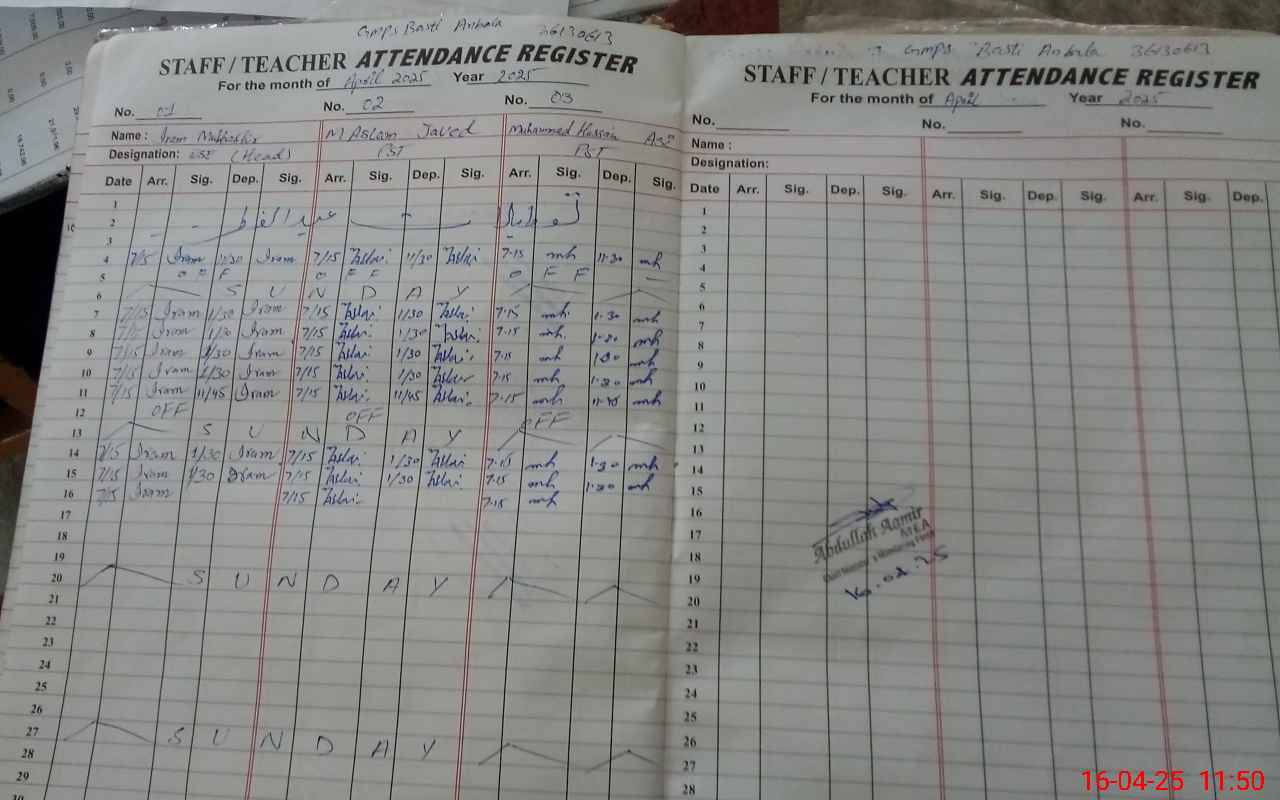 Gmps Basti Anbala 36130613
STAFF / TEACHER ATTENDANCE REGISTER
For the month of April 2025 Year 2025
No. 01 No. 02 No. 03
Name : Iram M Aslam Javed Muhammad Hassan
Designation: ESE (Head) PST PST
Date Arr. Sig. Dep. Sig. Arr. Sig. Dep. Sig. Arr. Sig. Dep. Sig.
1
2 عید الفطر
3
4 7/15 Iram 11/30 Iram 7/15 Aslam 11/30 Aslam 7-15 mh 11-30 mh
5 OFF OFF OFF
6 SUNDAY
7 7/15 Iram 1/30 Iram 7/15 Aslam 1/30 Aslam 7-15 mh 1-30 mh
8 7/15 Iram 1/30 Iram 7/15 Aslam 1/30 Aslam 7-15 mh 1-30 mh
9 7/15 Iram 1/30 Iram 7/15 Aslam 1/30 Aslam 7-15 mh 1-30 mh
10 7/15 Iram 1/30 Iram 7/15 Aslam 1/30 Aslam 7-15 mh 1-30 mh
11 7/15 Iram 11/45 Iram 7/15 Aslam 11/45 Aslam 7-15 mh 11-45 mh
12 OFF OFF OFF
13 SUNDAY
14 7/15 Iram 1/30 Iram 7/15 Aslam 1/30 Aslam 7-15 mh 1-30 mh
15 7/15 Iram 1/30 Iram 7/15 Aslam 1/30 Aslam 7-15 mh 1-30 mh
16 7/15 Iram 7/15 Aslam 7-15 mh
17
18
19
20 SUNDAY
21
22
23
24
25
26
27 SUNDAY
28
29
30
Gmps Basti Anbala 36130613
STAFF / TEACHER ATTENDANCE REGISTER
For the month of April Year 2025
No. No. No.
Name :
Designation:
Date Arr. Sig. Dep. Sig. Arr. Sig. Dep. Sig. Arr. Sig. Dep.
1
2
3
4
5
6
7
8
9
10
11
12
13
14
15
16
17
18
19
20
21
22
23
24
25
26
27
28
Abdullah Aamir
16-04-25 11:50